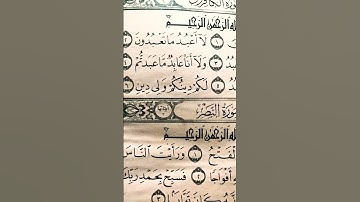 سُورَةُ الْكَافِرُونَ
ـهِ الرَّحْمَٰنِ الرَّحِيمِ
١ لَا أَعْبُدُ مَا تَعْبُدُونَ ٢
٣ وَلَا أَنَا عَابِدٌ مَا عَبَدْتُمْ ٤
٥ لَكُمْ دِينُكُمْ وَلِيَ دِينِ ٦
سُورَةُ النَّصْرِ
ـهِ الرَّحْمَٰنِ الرَّحِيمِ
لْفَتْحُ ١ وَرَأَيْتَ النَّاسَ
هِ أَفْوَاجًا ٢ فَسَبِّحْ بِحَمْدِ رَبِّكَ